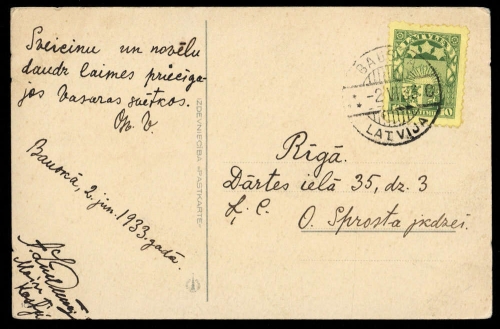 Sveicinu un novēlu
daudz laimes priecīga-
jos Vasaras svētkos.
Bauskā, 2. jūn. 1933. gadā.
IZDEVNIECĪBA «PASTKARTE»
LATVIJA
10
BAU
-2 VI
LATVIJA
Rīgā.
Dārtes ielā 35, dz. 3
Ļ. C.
O. Sprosta jkdzei.